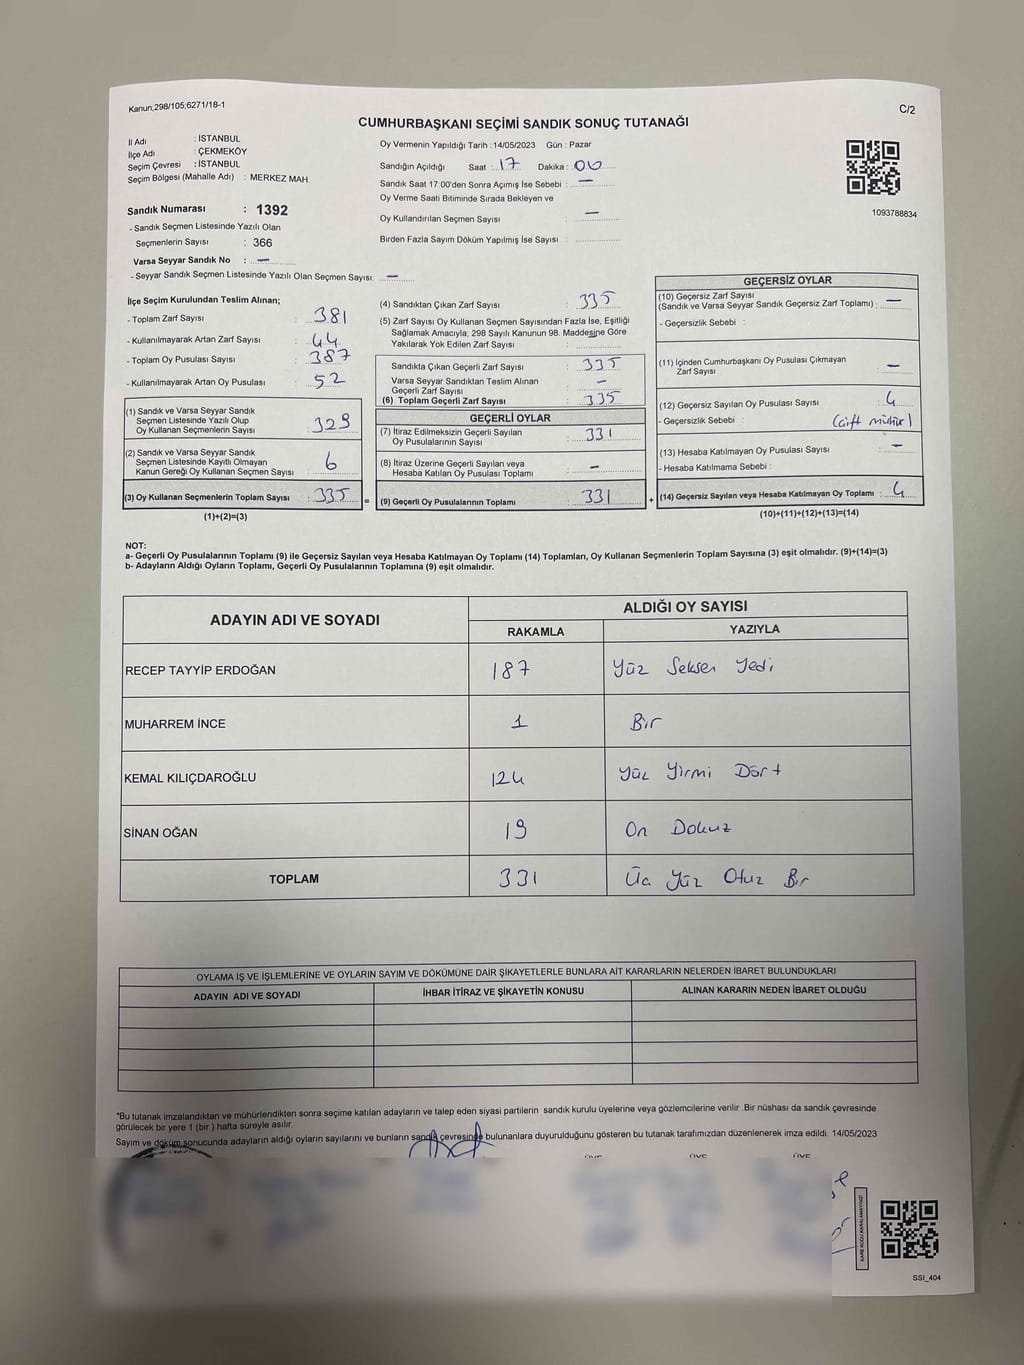 Kanun;298/105;6271/18-1
C/2
CUMHURBAŞKANI SEÇİMİ SANDIK SONUÇ TUTANAĞI
İl Adı : İSTANBUL
İlçe Adı : ÇEKMEKÖY
Seçim Çevresi : İSTANBUL
Seçim Bölgesi (Mahalle Adı) : MERKEZ MAH
Sandık Numarası : 1392
- Sandık Seçmen Listesinde Yazılı Olan
Seçmenlerin Sayısı : 366
Varsa Seyyar Sandık No : —
- Seyyar Sandık Seçmen Listesinde Yazılı Olan Seçmen Sayısı: —
Oy Vermenin Yapıldığı Tarih : 14/05/2023 Gün : Pazar
Sandığın Açıldığı Saat : 17 Dakika : 00
Sandık Saat 17:00'den Sonra Açımış İse Sebebi : —
Oy Verme Saati Bitiminde Sırada Bekleyen ve
Oy Kullandırılan Seçmen Sayısı : —
Birden Fazla Sayım Döküm Yapılmış İse Sayısı :
1093788834
İlçe Seçim Kurulundan Teslim Alınan;
- Toplam Zarf Sayısı : 381
- Kullanılmayarak Artan Zarf Sayısı : 44
- Toplam Oy Pusulası Sayısı : 387
- Kullanılmayarak Artan Oy Pusulası : 52
(1) Sandık ve Varsa Seyyar Sandık
Seçmen Listesinde Yazılı Olup
Oy Kullanan Seçmenlerin Sayısı : 329
(2) Sandık ve Varsa Seyyar Sandık
Seçmen Listesinde Kayıtlı Olmayan
Kanun Gereği Oy Kullanan Seçmen Sayısı : 6
(3) Oy Kullanan Seçmenlerin Toplam Sayısı : 335 =
(1)+(2)=(3)
(4) Sandıktan Çıkan Zarf Sayısı : 335
(5) Zarf Sayısı Oy Kullanan Seçmen Sayısından Fazla İse, Eşitliği
Sağlamak Amacıyla; 298 Sayılı Kanunun 98. Maddesine Göre
Yakılarak Yok Edilen Zarf Sayısı :
Sandıkta Çıkan Geçerli Zarf Sayısı : 335
Varsa Seyyar Sandıktan Teslim Alınan
Geçerli Zarf Sayısı : —
(6) Toplam Geçerli Zarf Sayısı : 335
GEÇERLİ OYLAR
(7) İtiraz Edilmeksizin Geçerli Sayılan
Oy Pusulalarının Sayısı : 331
(8) İtiraz Üzerine Geçerli Sayılan veya
Hesaba Katılan Oy Pusulası Toplamı : —
(9) Geçerli Oy Pusulalarının Toplamı : 331 +
GEÇERSİZ OYLAR
(10) Geçersiz Zarf Sayısı
(Sandık ve Varsa Seyyar Sandık Geçersiz Zarf Toplamı) : —
- Geçersizlik Sebebi :
(11) İçinden Cumhurbaşkanı Oy Pusulası Çıkmayan
Zarf Sayısı : —
(12) Geçersiz Sayılan Oy Pusulası Sayısı : 4
- Geçersizlik Sebebi : (çift mühür)
(13) Hesaba Katılmayan Oy Pusulası Sayısı : —
- Hesaba Katılmama Sebebi :
(14) Geçersiz Sayılan veya Hesaba Katılmayan Oy Toplamı : 4
(10)+(11)+(12)+(13)=(14)
NOT:
a- Geçerli Oy Pusulalarının Toplamı (9) ile Geçersiz Sayılan veya Hesaba Katılmayan Oy Toplamı (14) Toplamları, Oy Kullanan Seçmenlerin Toplam Sayısına (3) eşit olmalıdır. (9)+(14)=(3)
b- Adayların Aldığı Oyların Toplamı, Geçerli Oy Pusulalarının Toplamına (9) eşit olmalıdır.
ADAYIN ADI VE SOYADI ALDIĞI OY SAYISI
RAKAMLA YAZIYLA
RECEP TAYYİP ERDOĞAN 187 Yüz Seksen Yedi
MUHARREM İNCE 1 Bir
KEMAL KILIÇDAROĞLU 124 Yüz Yirmi Dört
SİNAN OĞAN 19 On Dokuz
TOPLAM 331 Üç Yüz Otuz Bir
OYLAMA İŞ VE İŞLEMLERİNE VE OYLARIN SAYIM VE DÖKÜMÜNE DAİR ŞİKAYETLERLE BUNLARA AİT KARARLARIN NELERDEN İBARET BULUNDUKLARI
ADAYIN ADI VE SOYADI İHBAR İTİRAZ VE ŞİKAYETİN KONUSU ALINAN KARARIN NEDEN İBARET OLDUĞU
*Bu tutanak imzalandıktan ve mühürlendikten sonra seçime katılan adayların ve talep eden siyasi partilerin sandık kurulu üyelerine veya gözlemcilerine verilir .Bir nüshası da sandık çevresinde
görülecek bir yere 1 (bir ) hafta süreyle asılır.
Sayım ve döküm sonucunda adayların aldığı oyların sayılarını ve bunların sandık çevresinde bulunanlara duyurulduğunu gösteren bu tutanak tarafımızdan düzenlenerek imza edildi. 14/05/2023
ÜYE ÜYE ÜYE
KARE KODU KARALAMAYINIZ!
SSI_404